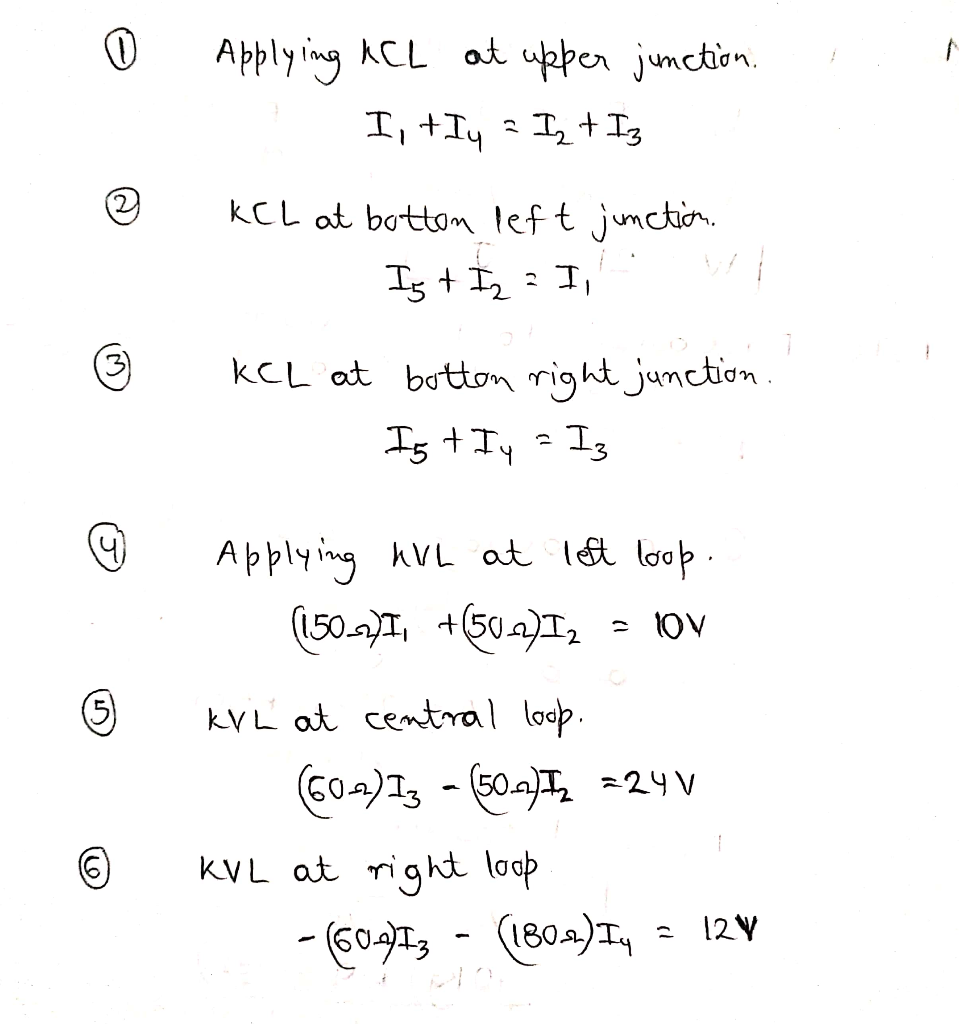 ① Applying KCL at upper junction.
I₁ + I₄ = I₂ + I₃
② KCL at bottom left junction.
I₅ + I₂ = I₁
③ KCL at bottom right junction.
I₅ + I₄ = I₃
④ Applying KVL at left loop.
(150Ω)I₁ + (50Ω)I₂ = 10V
⑤ KVL at central loop.
(60Ω)I₃ - (50Ω)I₂ = 24V
⑥ KVL at right loop
-(60Ω)I₃ - (180Ω)I₄ = 12V